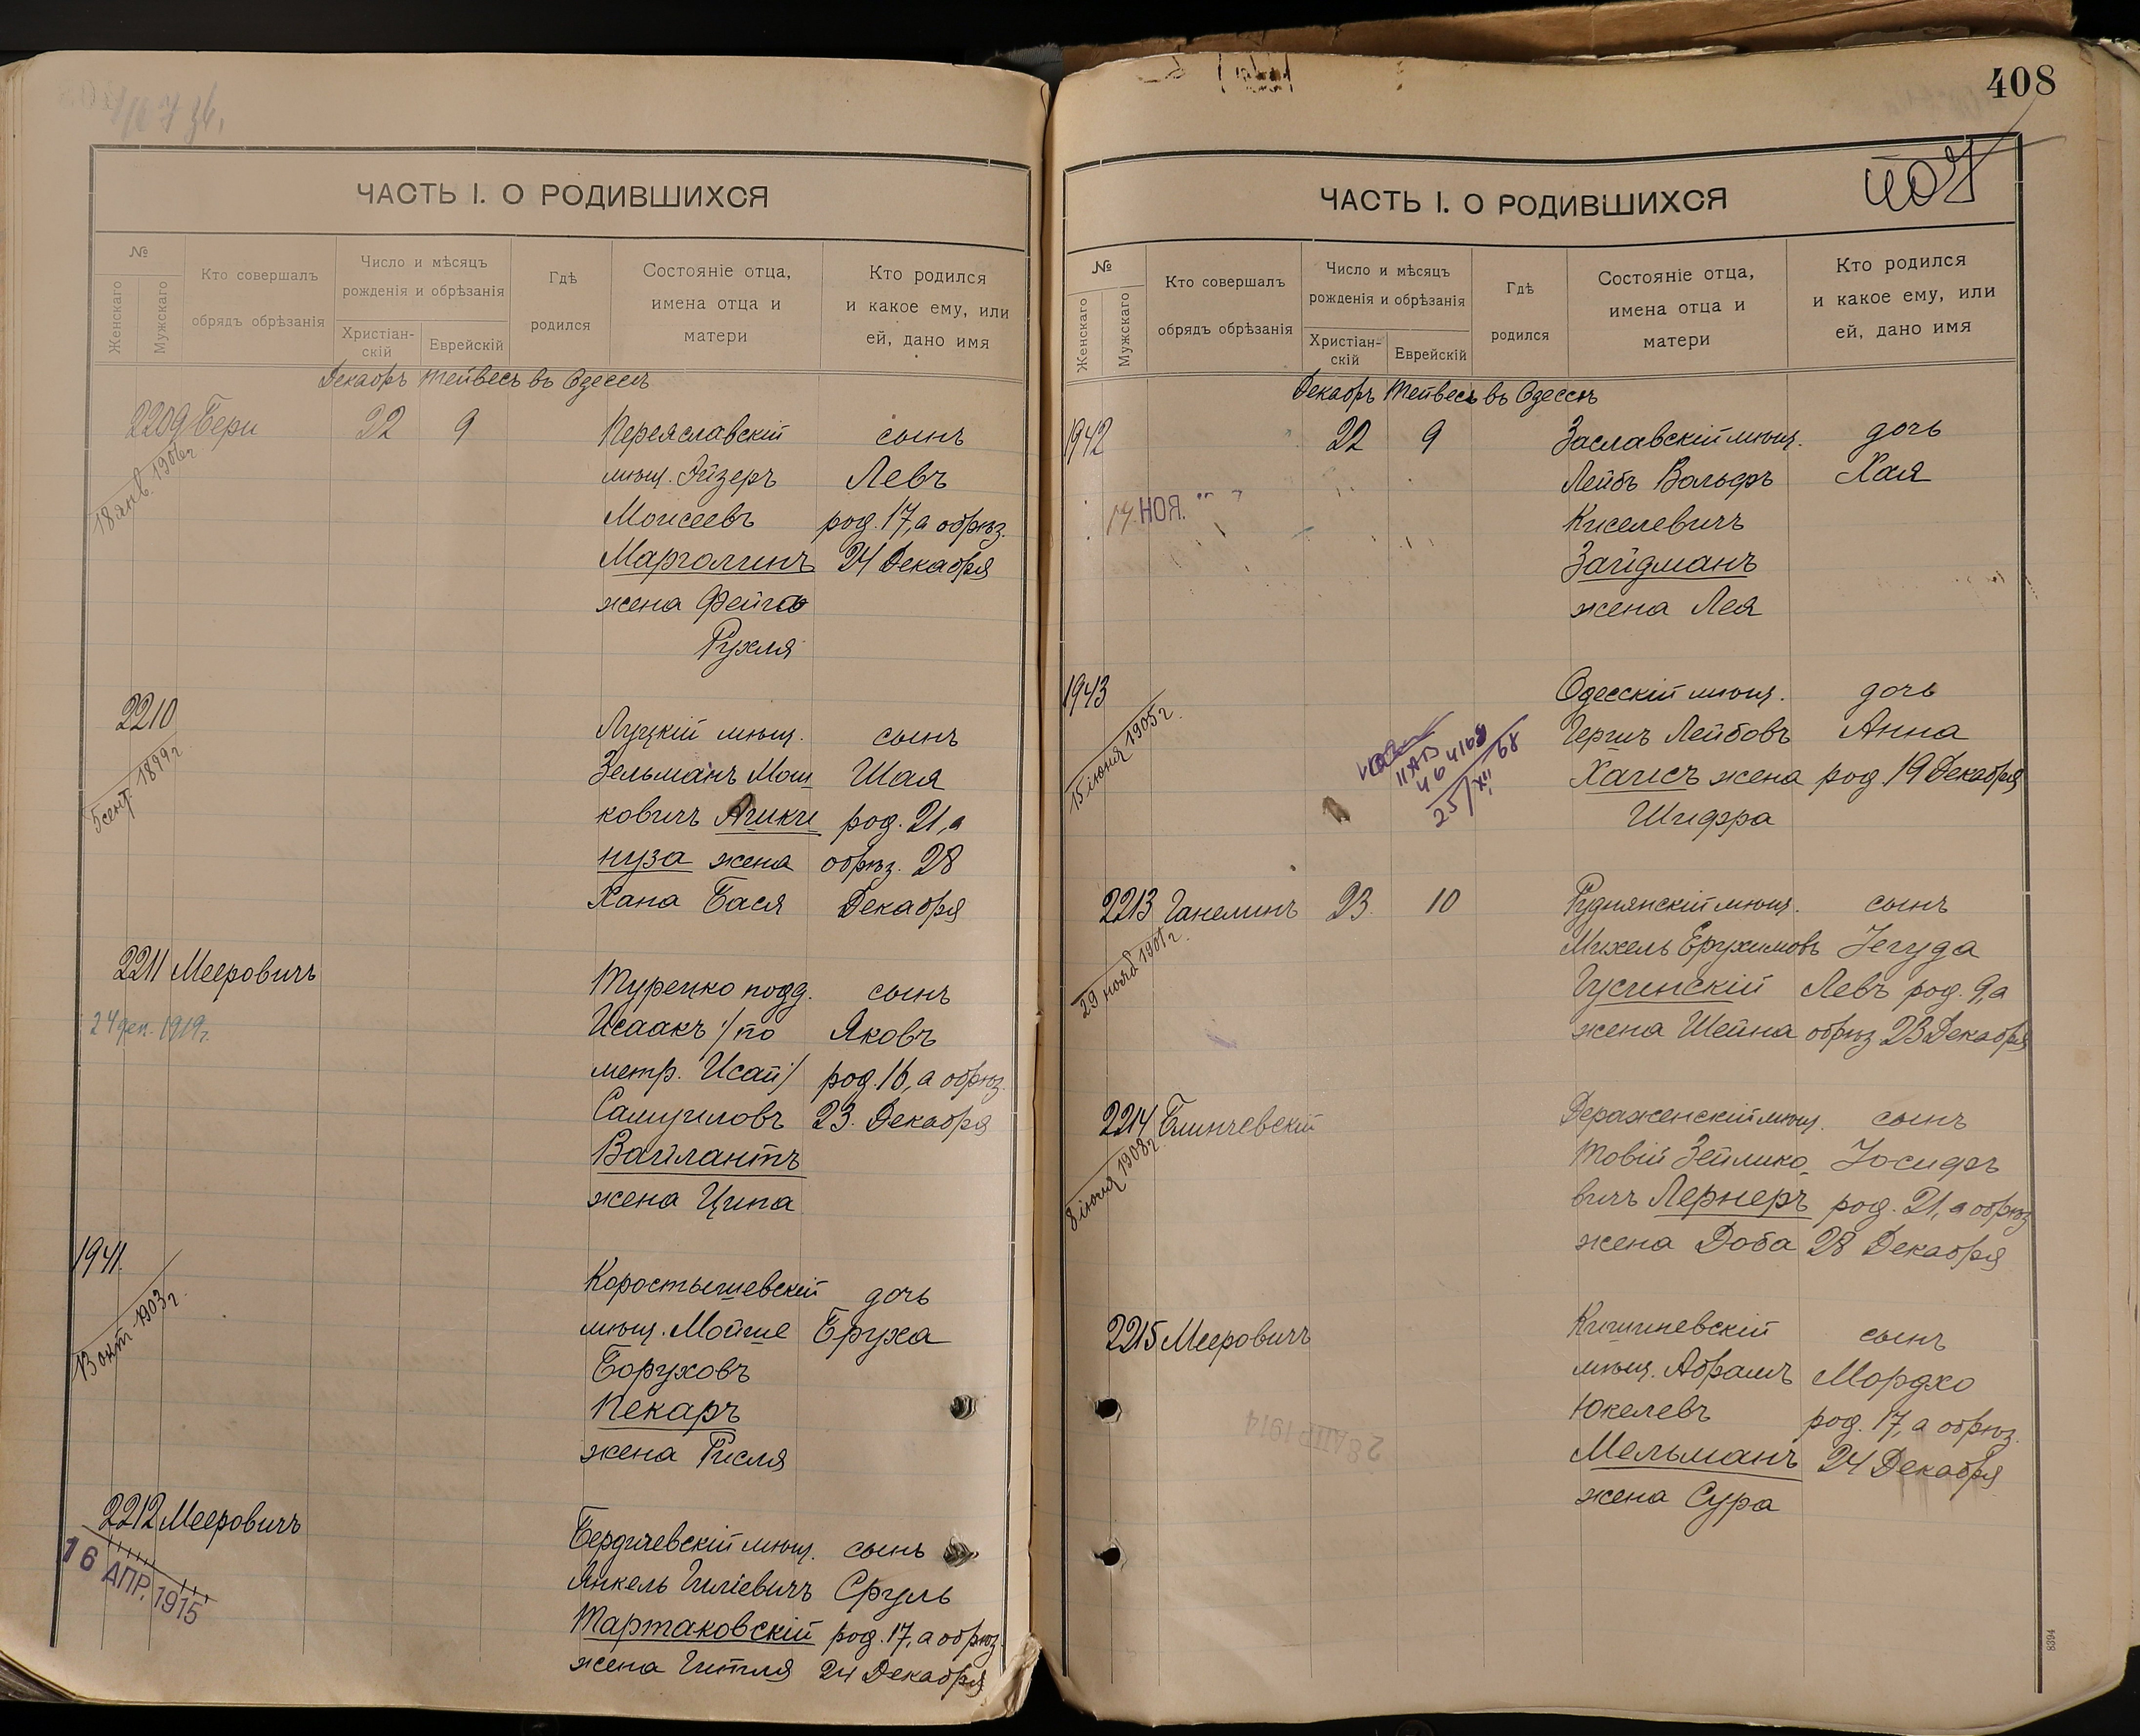 ЧАСТЬ I. О РОДИВШИХСЯ
№
Женскаго
Мужскаго
Кто совершалъ
обрядъ обрѣзанія
Число и мѣсяцъ
рожденія и обрѣзанія
Христіан-
скій
Еврейскій
Гдѣ
родился
Состояніе отца,
имена отца и
матери
Кто родился
и какое ему, или
ей, дано имя
Декабрь Тейвесъ въ Одессѣ
2209 Бери 22 9 Переяславскій сынъ
18 янв. 1906 г.
мѣщ. Лейзеръ Левъ
Моисеевъ род. 17, а обрѣз.
Марголинъ 24 Декабря
жена Фейга
Рухля
2210
5 сент. 1899 г.
Луцкій мѣщ. сынъ
Зельманъ Мош Шая
ковичъ Ашки род. 21, а
нуза жена обрѣз. 28
Хана Бася Декабря
2211 Мееровичъ
24 1919 г.
Турецко подд. сынъ
Исаакъ /по Яковъ
метр. Исай/ род. 16, а обрѣз.
Самуиловъ 23. Декабря
Вайлантъ
жена Ципа
1941.
13 окт. 1903 г.
Коростышевскій дочь
мѣщ. Мойше Бруха
Боруховъ
Пекаръ
жена Рисля
2212 Мееровичъ
16 АПР. 1915
Бердичевскій мѣщ. сынъ
Янкель Гиліевичъ Сруль
Тартаковскій род. 17, а обрѣз.
жена Гитля 24 Декабря
408
407
ЧАСТЬ I. О РОДИВШИХСЯ
№
Женскаго
Мужскаго
Кто совершалъ
обрядъ обрѣзанія
Число и мѣсяцъ
рожденія и обрѣзанія
Христіан-
скій
Еврейскій
Гдѣ
родился
Состояніе отца,
имена отца и
матери
Кто родился
и какое ему, или
ей, дано имя
Декабрь Тейвесъ въ Одессѣ
1942 22 9 Заславскій мѣщ. дочь
14. НОЯ.
Лейбъ Вольфъ Хая
Киселевичъ
Зайдманъ
жена Лея
1943
15 іюня 1905 г.
25/XII 68
Одесскій мѣщ. дочь
Гершъ Лейбовъ Анна
Хаисъ жена род. 19 Декабря
Шифра
2213 Ганелинъ 23. 10 Руднянскій мѣщ. сынъ
29 нояб. 1901 г.
Михель Ерухимовъ Іегуда
Гусинскій Левъ род. 9, а
жена Шейна обрѣз 23 Декабря
2214 Блинчевскій
8 іюня 1908 г.
Дераженскій мѣщ. сынъ
Товій Зейлико Іосифъ
вичъ Лернеръ род. 21, а обрѣз
жена Доба 28 Декабря
2215 Мееровичъ
28 АПР 1914
Кишиневскій сынъ
мѣщ. Абрамъ Мордхо
Юкелевъ род. 17, а обрѣз.
Мельманъ 24 Декабря
жена Сура
8394